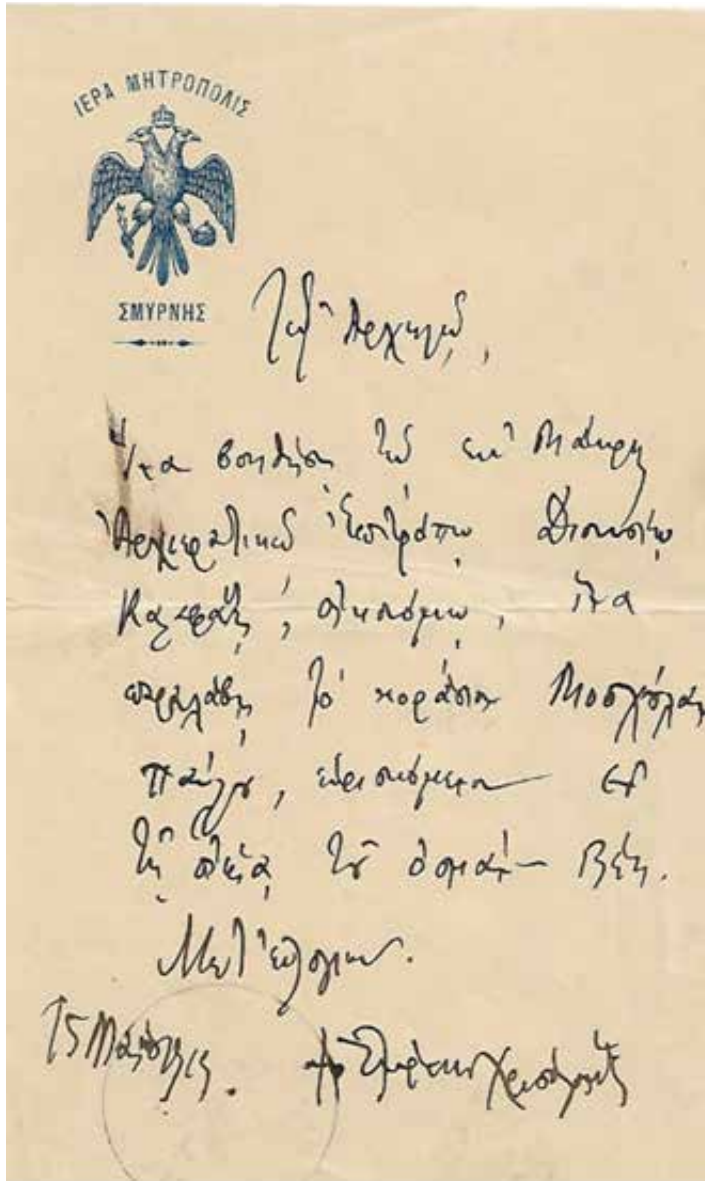 ΙΕΡΑ ΜΗΤΡΟΠΟΛΙΣ
ΣΜΥΡΝΗΣ
Τῷ Ἀρχηγῷ,
Ἵνα βοηθήσῃ τῷ ἐν
Ἀρχιερατικῷ Ἐπιτρόπῳ Διονυσίῳ
οἰκονόμῳ, ἵνα
παραλάβῃ τὸ κοράσιον
Παύλου, εὑρισκόμενον ἐν
τῇ οἰκίᾳ τοῦ Ὀσμὰν Βέη.
Μετ' εὐχῶν.
15 Μαΐου 1919.
† ὁ Σμύρνης Χρυσόστομος